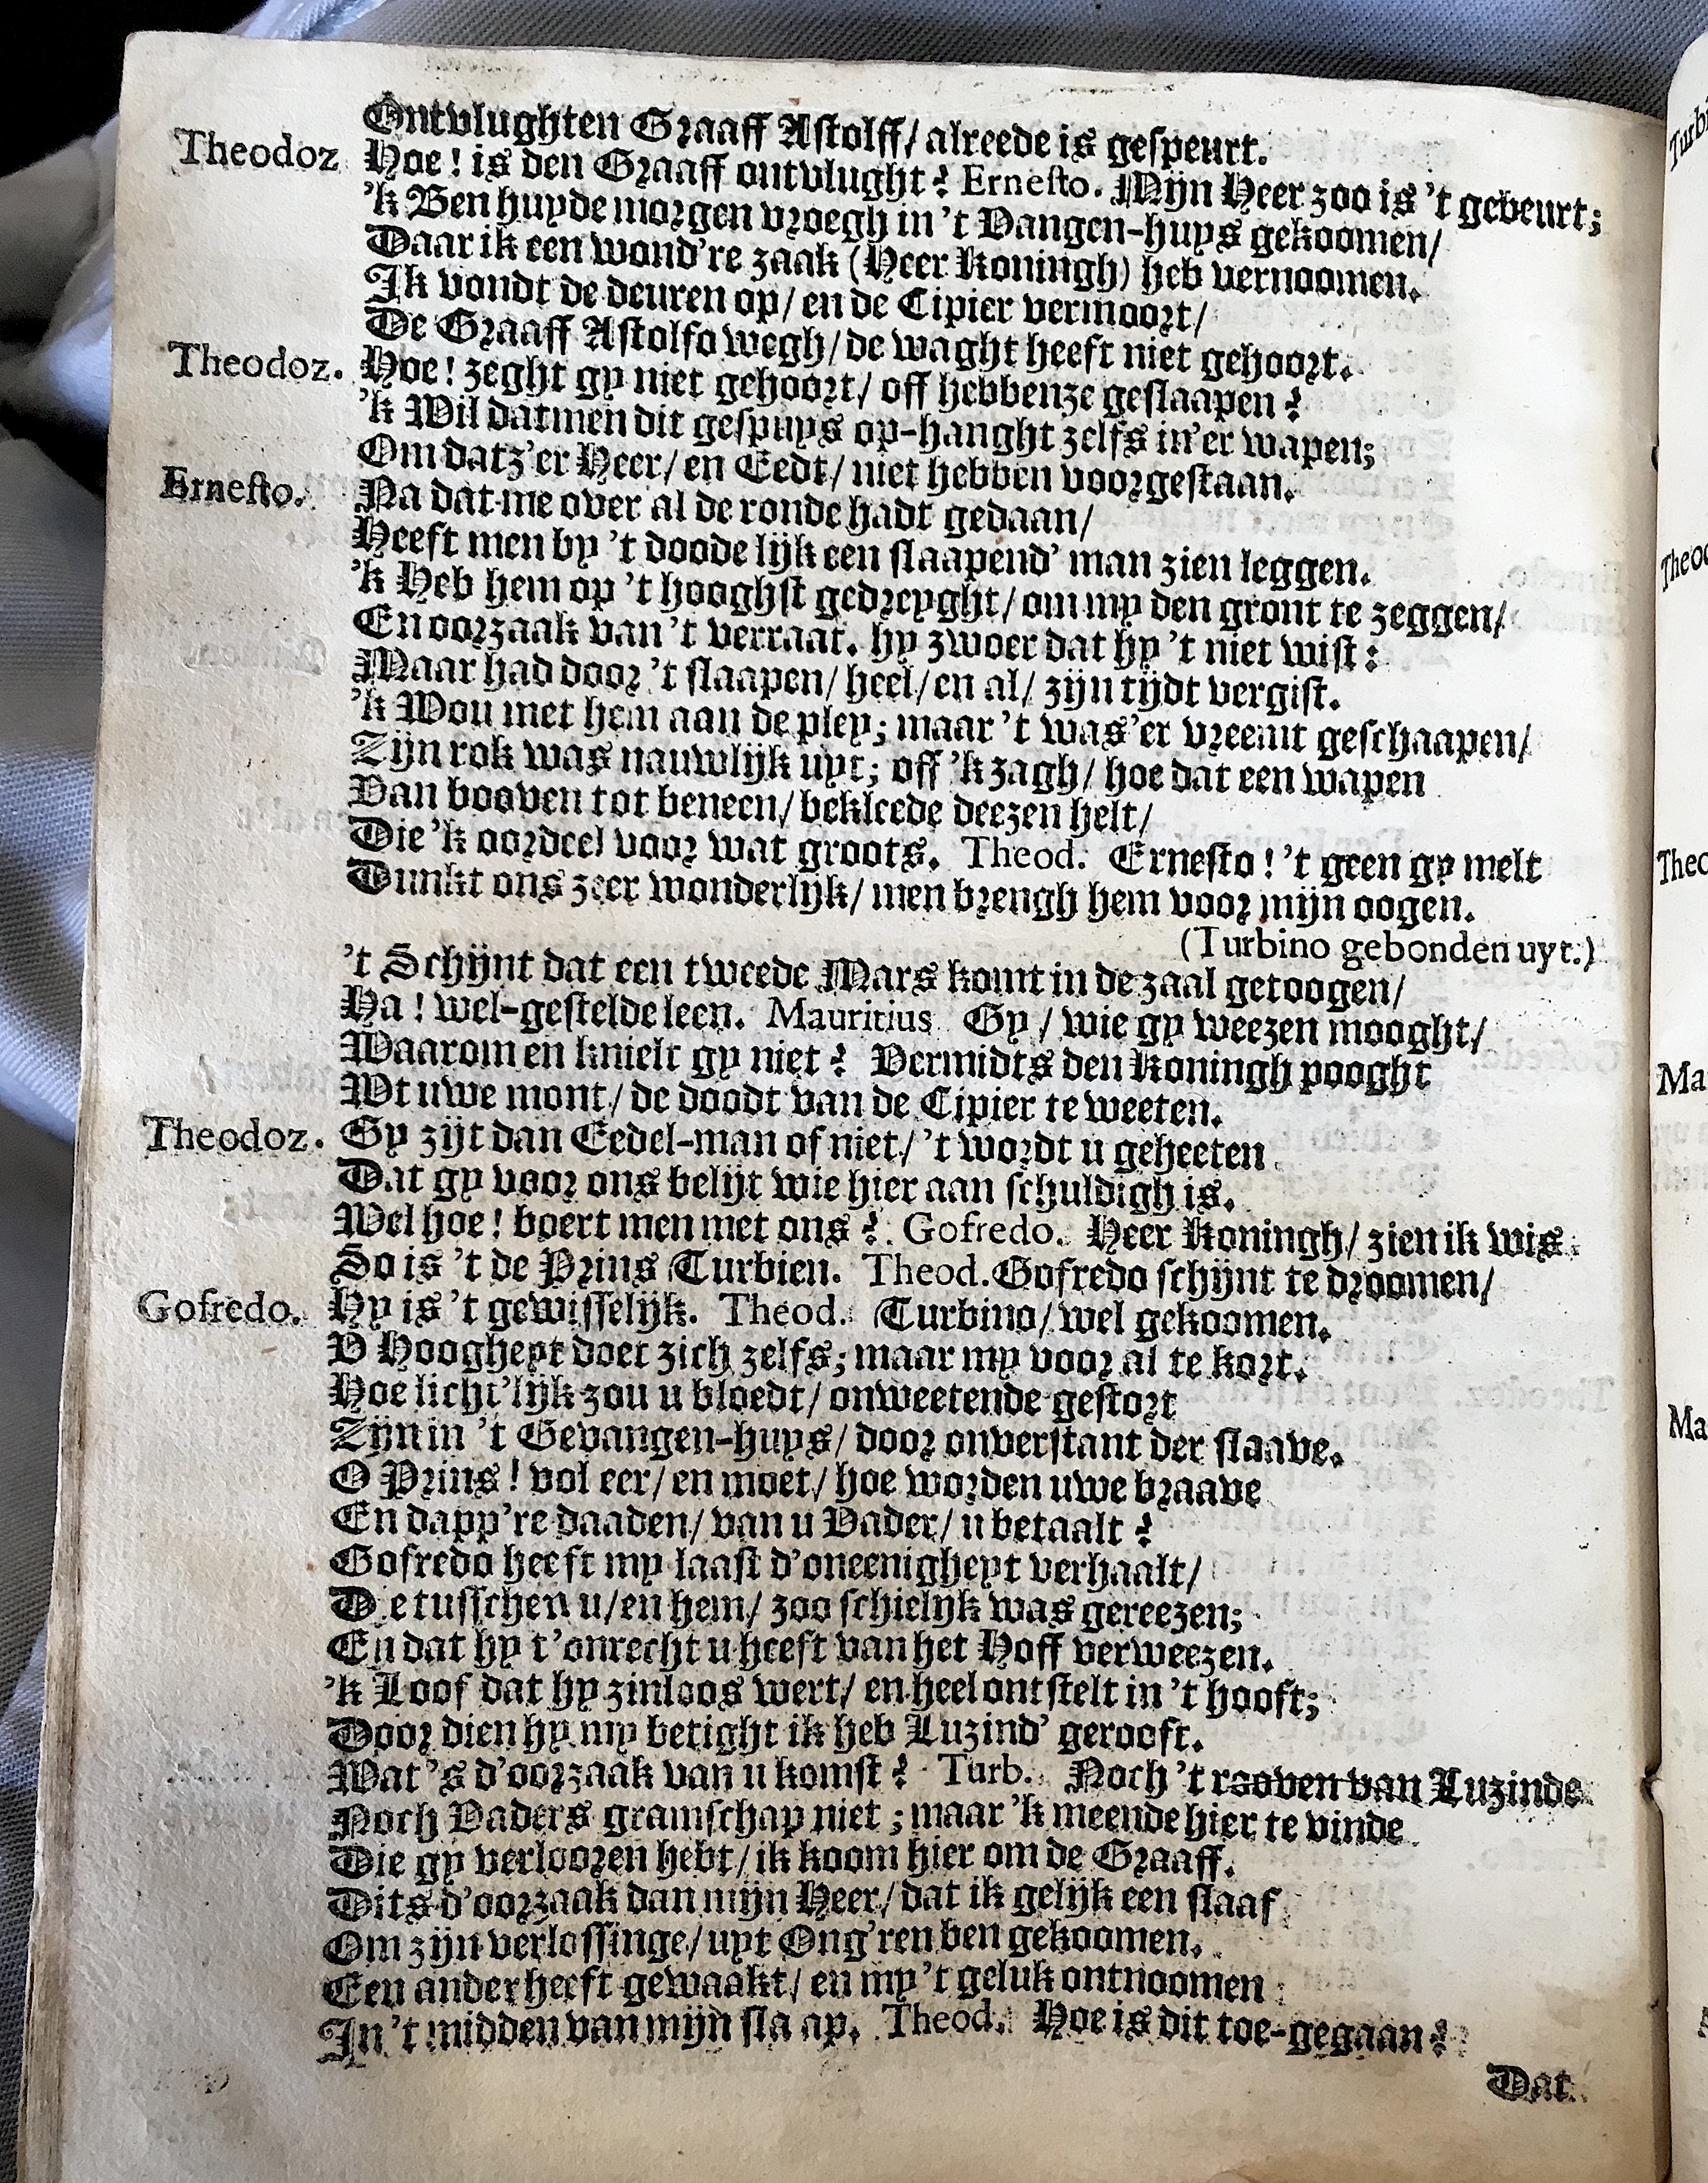 Ontvlughten Graaff Astolff/ alreede is gespeurt.
Theodoz Hoe! is den Graaff ontvlught? Ernesto. Mijn Heer zoo is 't gebeurt;
'k Ben huyde morgen vroegh in 't Vangen-huys gekoomen/
Daar ik een wond're zaak (Heer Koningh) heb vernoomen.
Ik vondt de deuren op/ en de Cipier vermoort/
De Graaff Astolfo wegh/ de waght heeft niet gehoort.
Theodoz. Hoe! zeght gy niet gehoort/ off hebbenze geslaapen?
'k Wil datmen dit gespuys op-hanght zelfs in'er wapen;
Om datz'er Heer/ en Eedt/ niet hebben voorgestaan.
Ernesto. Na dat me over al de ronde hadt gedaan/
Heeft men by 't doode lijk een slaapend' man zien leggen.
'k Heb hem op 't hooghst gedreyght/ om my den gront te zeggen/
En oorzaak van 't verraat. hy zwoer dat hy 't niet wist:
Maar had door 't slaapen/ heel/ en al/ zijn tijdt vergist.
'k Wou met hem aan de pley; maar 't was'er vreemt geschaapen/
Zijn rok was nauwlijk uyt; off 'k zagh/ hoe dat een wapen
Van booven tot beneen/ bekleede deezen helt/
Die 'k oordeel voor wat groots. Theod. Ernesto! 't geen gy melt
Dunkt ons zeer wonderlijk/ men brengh hem voor mijn oogen.
(Turbino gebonden uyt.)
't Schijnt dat een tweede Mars komt in de zaal getoogen/
Ha! wel-gestelde leen. Mauritius Gy/ wie gy weezen mooght/
Waarom en knielt gy niet? Vermidts den Koningh pooght
Wt uwe mont/ de doodt van de Cipier te weeten.
Theodoz. Gy zijt dan Eedel-man of niet/ 't wordt u geheeten
Dat gy voor ons belijt wie hier aan schuldigh is.
Wel hoe! boert men met ons? Gofredo. Heer Koningh/ zien ik wis.
So is 't de Prins Turbien. Theod. Gofredo schijnt te droomen/
Gofredo. Hy is 't gewisselijk. Theod. Turbino/ wel gekoomen.
V Hoogheyt doet zich zelfs; maar my voor al te kort.
Hoe licht'lijk zou u bloedt/ onweetende gestort
Zijn in 't Gevangen-huys/ door onverstant der slaave.
O Prins! vol eer/ en moet/ hoe worden uwe braave
En dapp're daaden/ van u Vader/ u betaalt?
Gofredo heeft my laast d'oneenigheyt verhaalt/
Die tusschen u/ en hem/ zoo schielijk was gereezen;
En dat hy t'onrecht u heeft van het Hoff verweezen.
'k Loof dat hy zinloos wert/ en heel ontstelt in 't hooft;
Door dien hy my betight ik heb Luzind' gerooft.
Wat 's d'oorzaak van u komst? Turb. Noch 't rooven van Luzinde
Noch Vaders gramschap niet; maar 'k meende hier te vinde
Die gy verloozen hebt/ ik koom hier om de Graaff.
Dits d'oorzaak dan mijn Heer/ dat ik gelijk een slaaf
Om zijn verlossinge/ uyt Ong'ren ben gekoomen.
Een ander heeft gewaakt/ en my 't geluk ontnoomen
In 't midden van mijn slaap. Theod. Hoe is dit toe-gegaan?
Dat